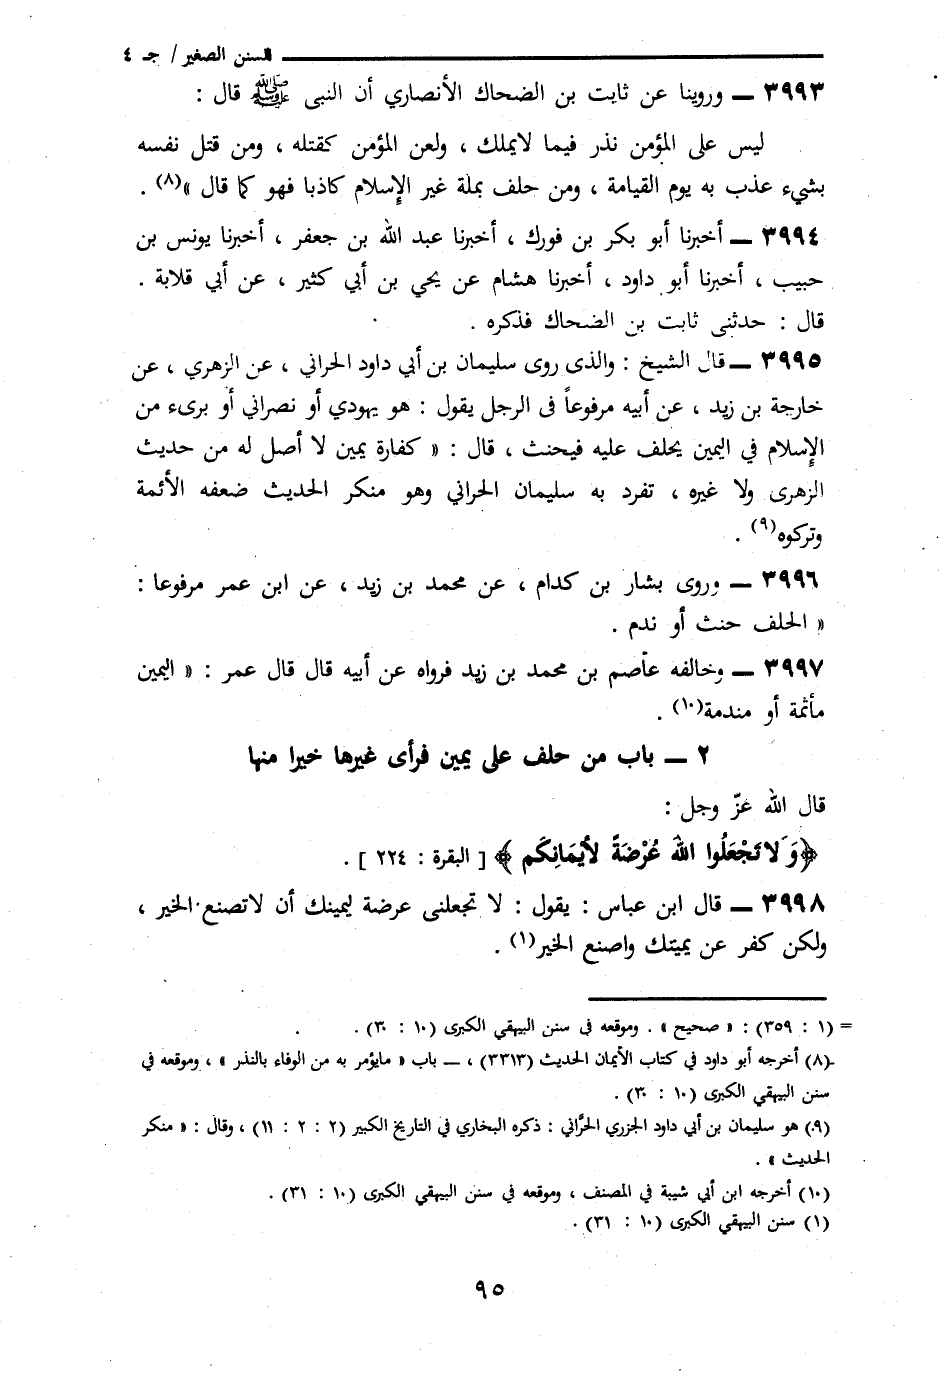 السنن الصغير / جـ ٤
٣٩٩٣ ــ وروينا عن ثابت بن الضحاك الأنصاري أن النبى ﷺ قال :
ليس على المؤمن نذر فيما لايملك ، ولعن المؤمن كقتله ، ومن قتل نفسه
بشيء عذب به يوم القيامة ، ومن حلف بملة غير الإسلام كاذبا فهو كما قال »(٨) .
٣٩٩٤ ــ أخبرنا أبو بكر بن فورك ، أخبرنا عبد الله بن جعفر ، أخبرنا يونس بن
حبيب ، أخبرنا أبو داود ، أخبرنا هشام عن يحي بن أبي كثير ، عن أبي قلابة .
قال : حدثنى ثابت بن الضحاك فذكره .
٣٩٩٥ ــ قال الشيخ : والذى روى سليمان بن أبي داود الحراني ، عن الزهري ، عن
خارجة بن زيد ، عن أبيه مرفوعاً فى الرجل يقول : هو يهودي أو نصراني أو برىء من
الإسلام في اليمين يحلف عليه فيحنث ، قال : « كفارة يمين لا أصل له من حديث
الزهرى ولا غيره ، تفرد به سليمان الحراني وهو منكر الحديث ضعفه الأئمة
وتركوه(٩) .
٣٩٩٦ ــ وروى بشار بن كدام ، عن محمد بن زيد ، عن ابن عمر مرفوعا :
« الحلف حنث أو ندم .
٣٩٩٧ ــ وخالفه عاصم بن محمد بن زيد فرواه عن أبيه قال قال عمر : « اليمين
مأثمة أو مندمة(١٠) .
٢ ــ باب من حلف على يمين فرأى غيرها خيرا منها
قال الله عزّ وجل :
﴿وَلا تَجْعَلُوا اللهَ عُرْضَةً لأَيْمَانِكَم ﴾ [ البقرة : ٢٢٤ ] .
٣٩٩٨ ــ قال ابن عباس : يقول : لا تجعلنى عرضة ليمينك أن لاتصنع الخير ،
ولكن كفر عن يمينك واصنع الخير(١) .
= (١ : ٣٥٩) : « صحيح » . وموقعه فى سنن البيهقي الكبرى (١٠ : ٣٠) .
(٨) أخرجه أبو داود في كتاب الأيمان الحديث (٣٣١٣) ، ــ باب « مايؤمر به من الوفاء بالنذر » ، وموقعه في
سنن البيهقي الكبرى (١٠ : ٣٠) .
(٩) هو سليمان بن أبي داود الجزري الحرَّاني : ذكره البخاري في التاريخ الكبير (٢ : ٢ : ١١) ، وقال : « منكر
الحديث » .
(١٠) أخرجه ابن أبي شيبة في المصنف ، وموقعه في سنن البيهقي الكبرى (١٠ : ٣١) .
(١) سنن البيهقي الكبرى (١٠ : ٣١) .
٩٥